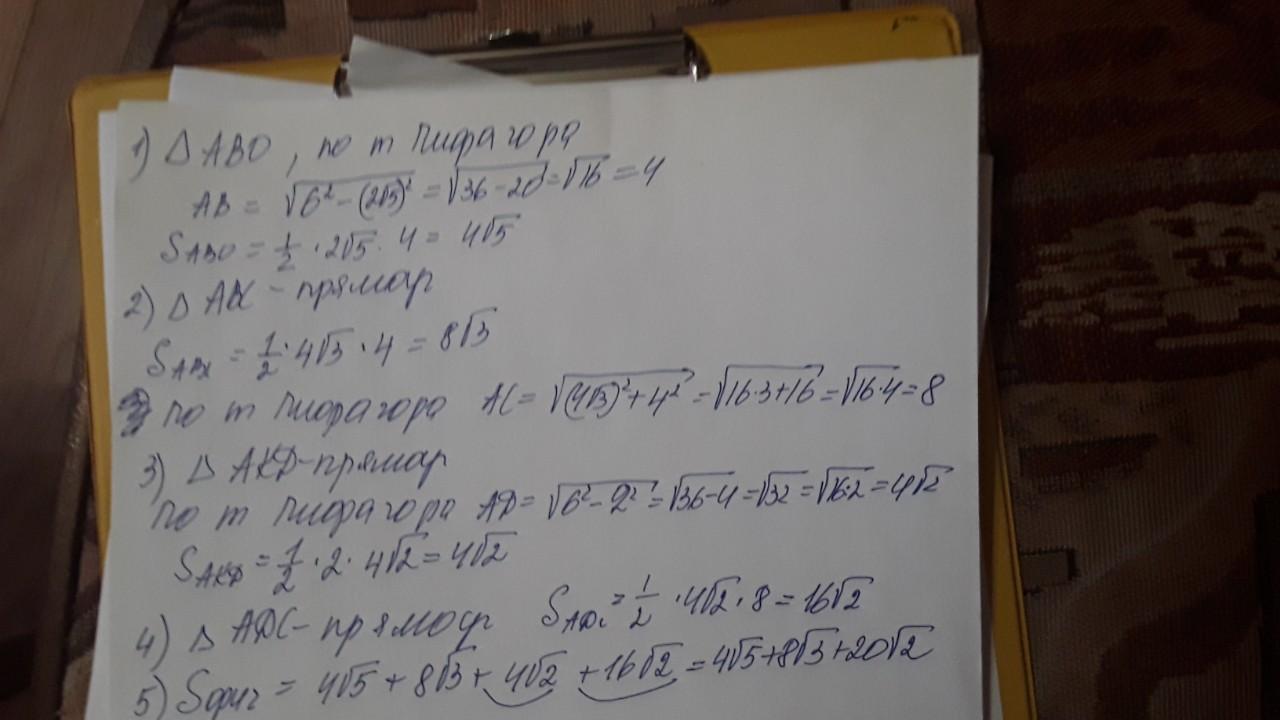 1) △ ABO, по т Пифагора
AB = √(6² - (2√5)²) = √(36 - 20) = √16 = 4
S ABO = 1/2 · 2√5 · 4 = 4√5
2) △ ABC - прямоуг
S ABC = 1/2 · 4√3 · 4 = 8√3
по т Пифагора AC = √((4√3)² + 4²) = √(16·3+16) = √(16·4) = 8
3) △ AKD - прямоуг
по т Пифагора AD = √(6² - 2²) = √(36-4) = √32 = √(16·2) = 4√2
S AKD = 1/2 · 2 · 4√2 = 4√2
4) △ ADC - прямоуг S ADC = 1/2 · 4√2 · 8 = 16√2
5) Sфиг = 4√5 + 8√3 + 4√2 + 16√2 = 4√5+8√3+20√2